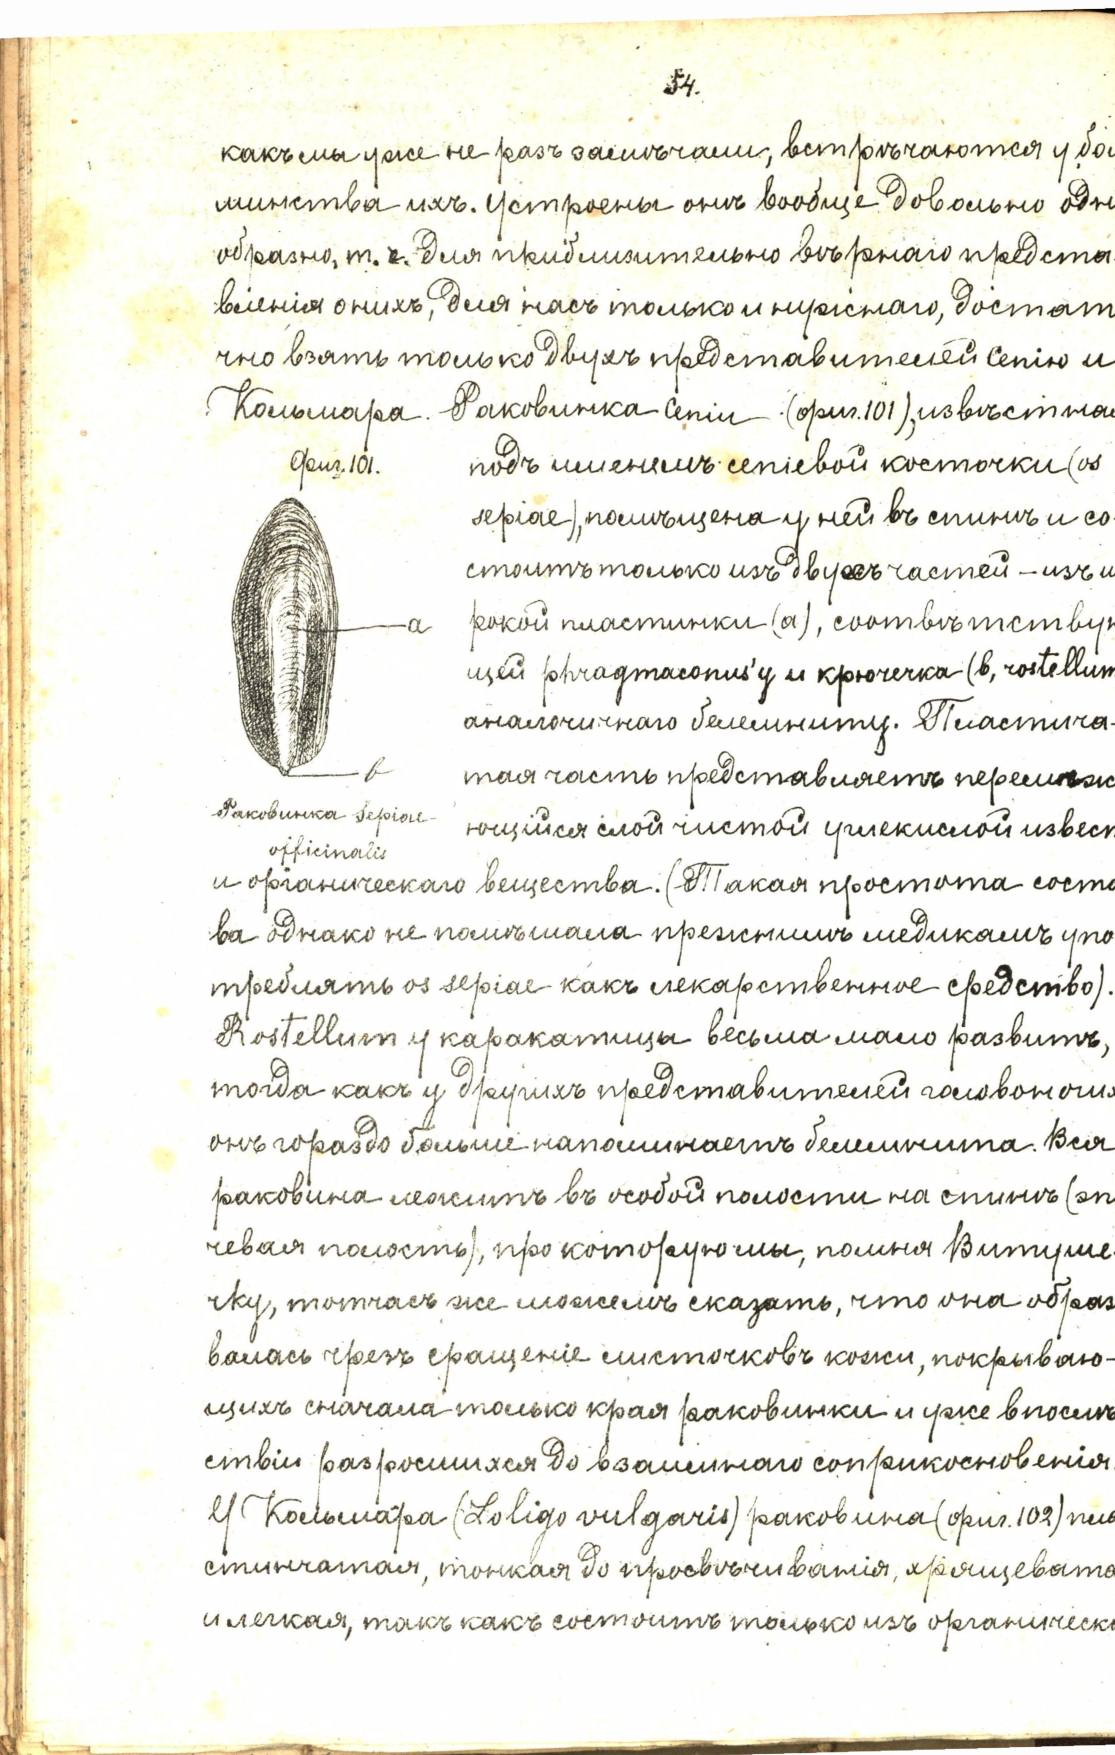 54.
какъ мы уже не разъ замѣчали, встрѣчаются у бол
шинства ихъ. Устроены онѣ вообще довольно одно
образно, т. ч. для приблизительно вѣрнаго предста-
вленія о нихъ, для насъ только и нужнаго, достат
чно взять только двухъ представителей Сепію и
Кольмара. Раковинка Сепіи (фиг. 101), извѣстная
Фиг. 101.
подъ именемъ сепіевой косточки (os
sepiae), помѣщена у ней въ спинѣ и со-
стоитъ только изъ двухъ частей – изъ ш
a
рокой пластинки (а), соотвѣтствую
щей phragmaconus'у и крючечка (b, rostellum
аналогичнаго белемниту. Пластинча-
b
тая часть представляетъ перемеж
Раковинка Sepiae
officinalis
ющійся слой чистой углекислой извест
и органическаго вещества. (Такая простота соста
ва однако не помѣшала прежнимъ медикамъ упо
треблять os sepiae какъ лекарственное средство).
Rostellum у каракатицы весьма мало развитъ,
тогда какъ у другихъ представителей головоногих
онъ гораздо больше напоминаетъ белемнита. Вся
раковина лежитъ въ особой полости на спинѣ (эп
чевая полость), про которую мы, помня Витуше-
чку, тотчасъ же можемъ сказать, что она образ
валась чрезъ сращеніе листочковъ кожи, покрываю-
щихъ сначала только края раковинки и уже впослѣ
ствіи разросшихся до взаимнаго соприкосновенія.
У Кольмара (Loligo vulgaris) раковина (фиг. 102) пла
стинчатая, тонкая до просвѣчиванія, хрящевата
и легкая, такъ какъ состоитъ только изъ органическо